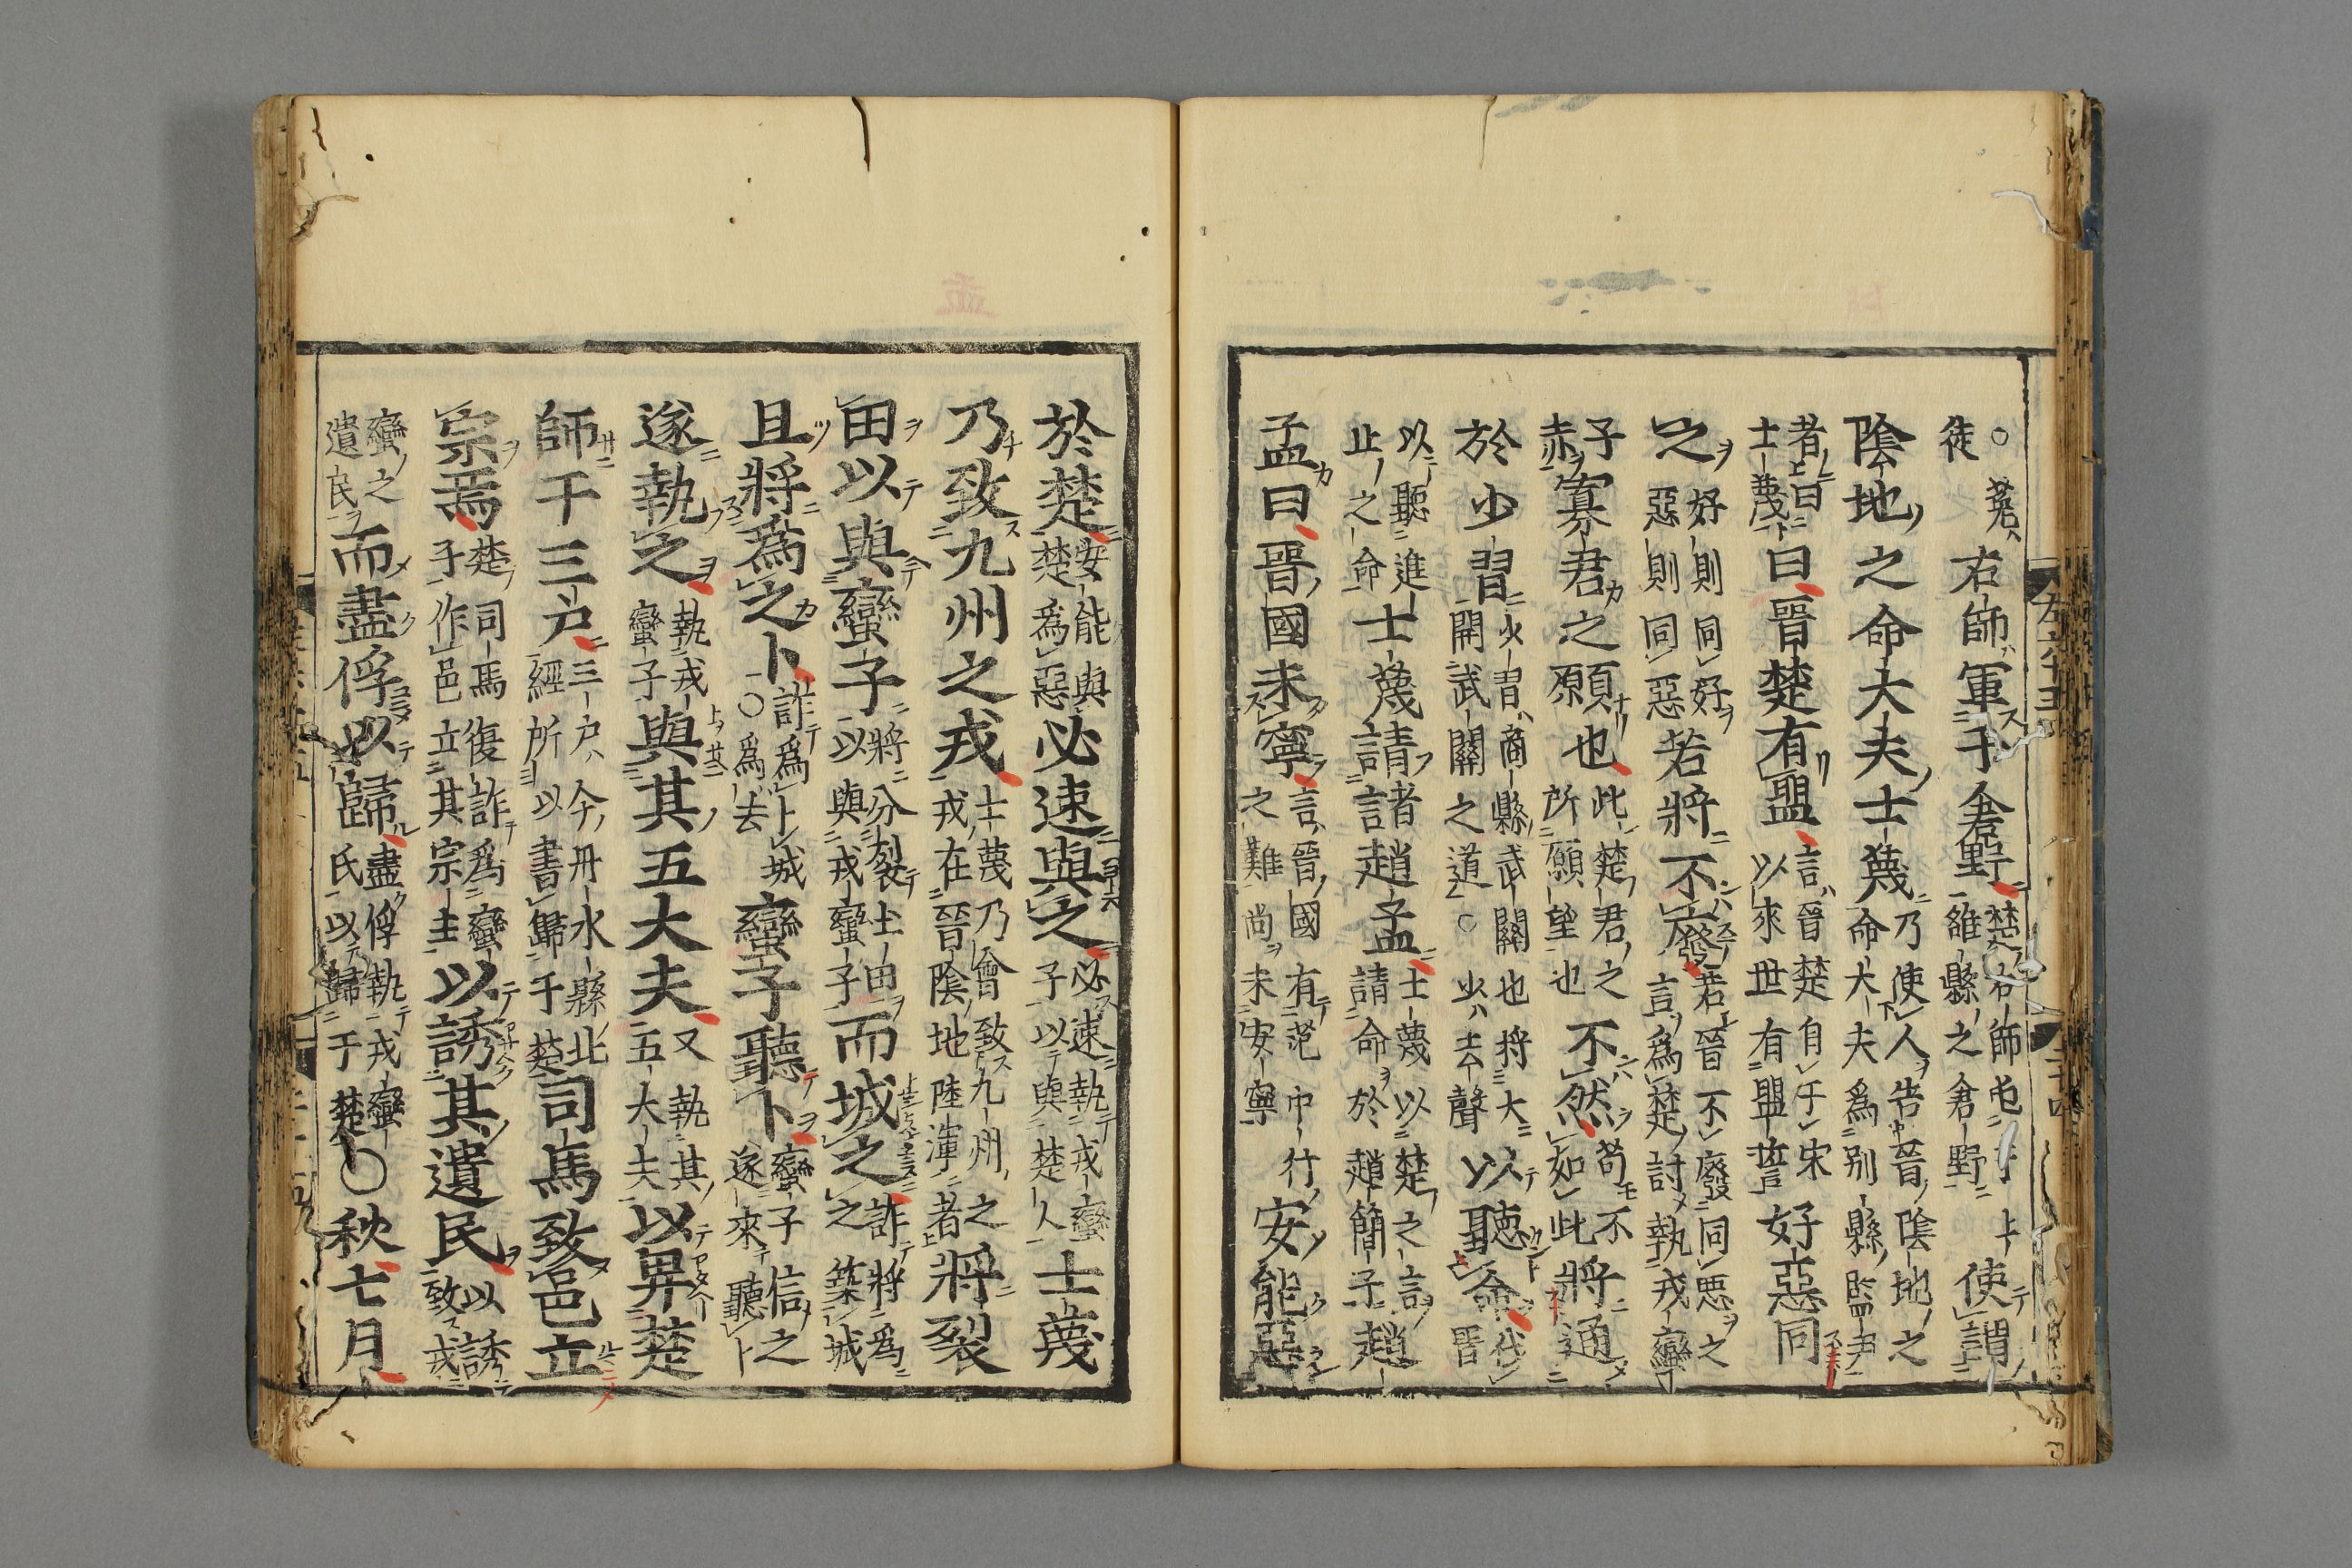 徒○菟右師軍于倉野楚右師屯于上雒縣之倉野使謂
陰地之命大夫士蔑乃使人告晉陰地之命大夫爲別縣監尹
者士蔑曰晉楚有盟言晉楚自于宋以來世有盟誓好惡同
之好則同好惡則同惡若將不廢若晉不廢同惡之言爲楚討執戎蠻
子赤寡君之願也此楚君之所願望也不然苟不如此將通
於少習少習商縣武關也将大開武關之道○少去聲以聽命伐晉
以聽進止之命士蔑請諸趙孟士蔑以楚之言請命於趙簡子趙
孟曰晉國未寧言晉國有范中行之難尚未安寧安能惡
於楚安能與楚爲惡必速與之必速執戎蠻子以與楚人士蔑
乃致九州之戎士蔑乃會致九州之戎在晉陰地陸渾者將裂
田以與蠻子將分裂土田以與戎蠻子而城之詐將爲之築城
且將爲之卜詐爲卜城○爲去蠻子聽卜蠻子信之遂來聽卜
遂執之執戎蠻子與其五大夫又執其五大夫以畀楚
師于三戶三戶今丹水縣北經所以書歸于楚司馬致邑立
宗焉楚司馬復詐爲蠻子作邑立其宗主以誘其遺民以誘致戎
蠻之遺民而盡俘以歸盡俘執戎蠻氏以歸于楚○秋七月